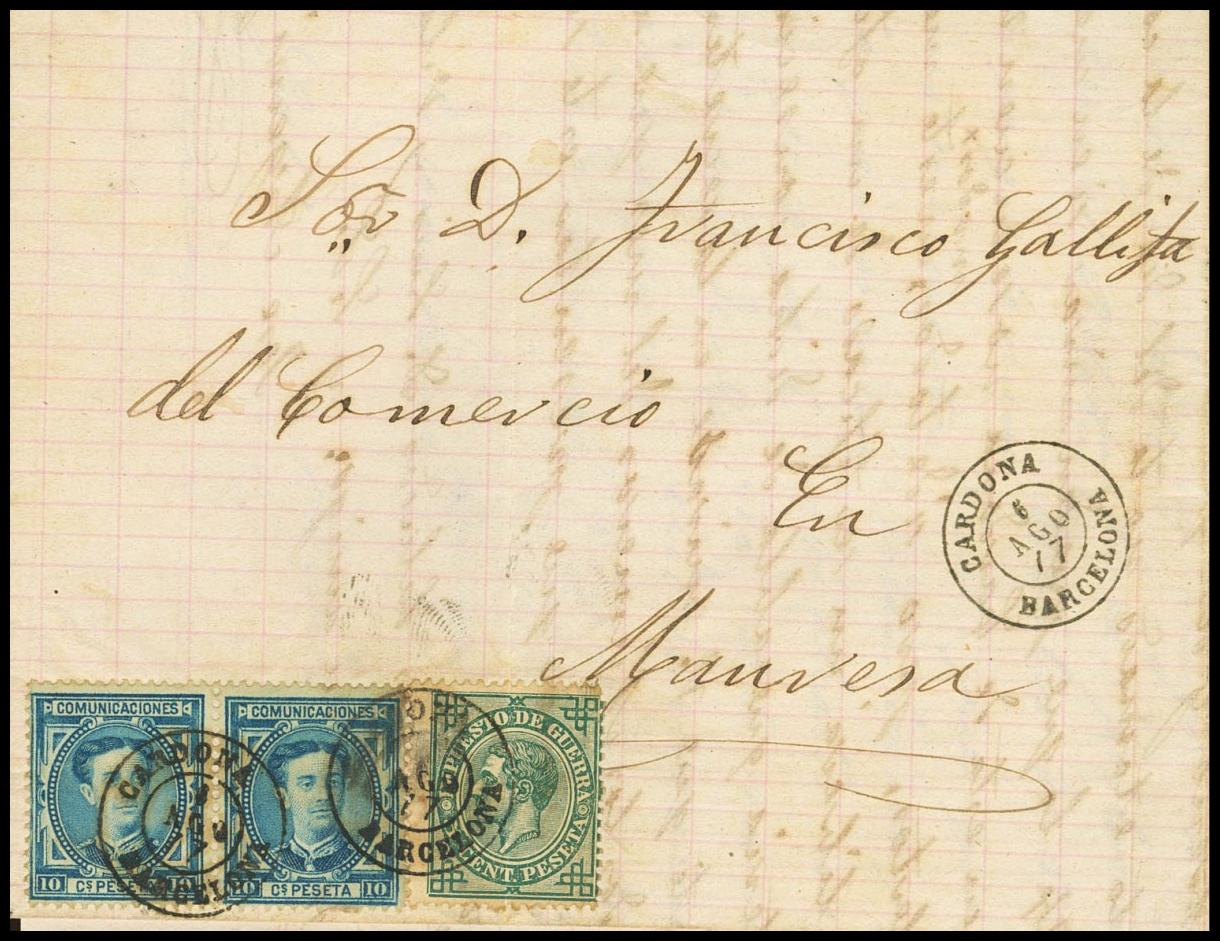 Sor D. Francisco Gallifa
del Comercio
En
Manresa
CARDONA
6
AGO
77
BARCELONA
COMUNICACIONES
10 Cs PESETA 10
CARDONA
AGO
BARCELONA
COMUNICACIONES
10 Cs PESETA 10
AGO
77
BARCELONA
IMPUESTO DE GUERRA
CENT. PESETA